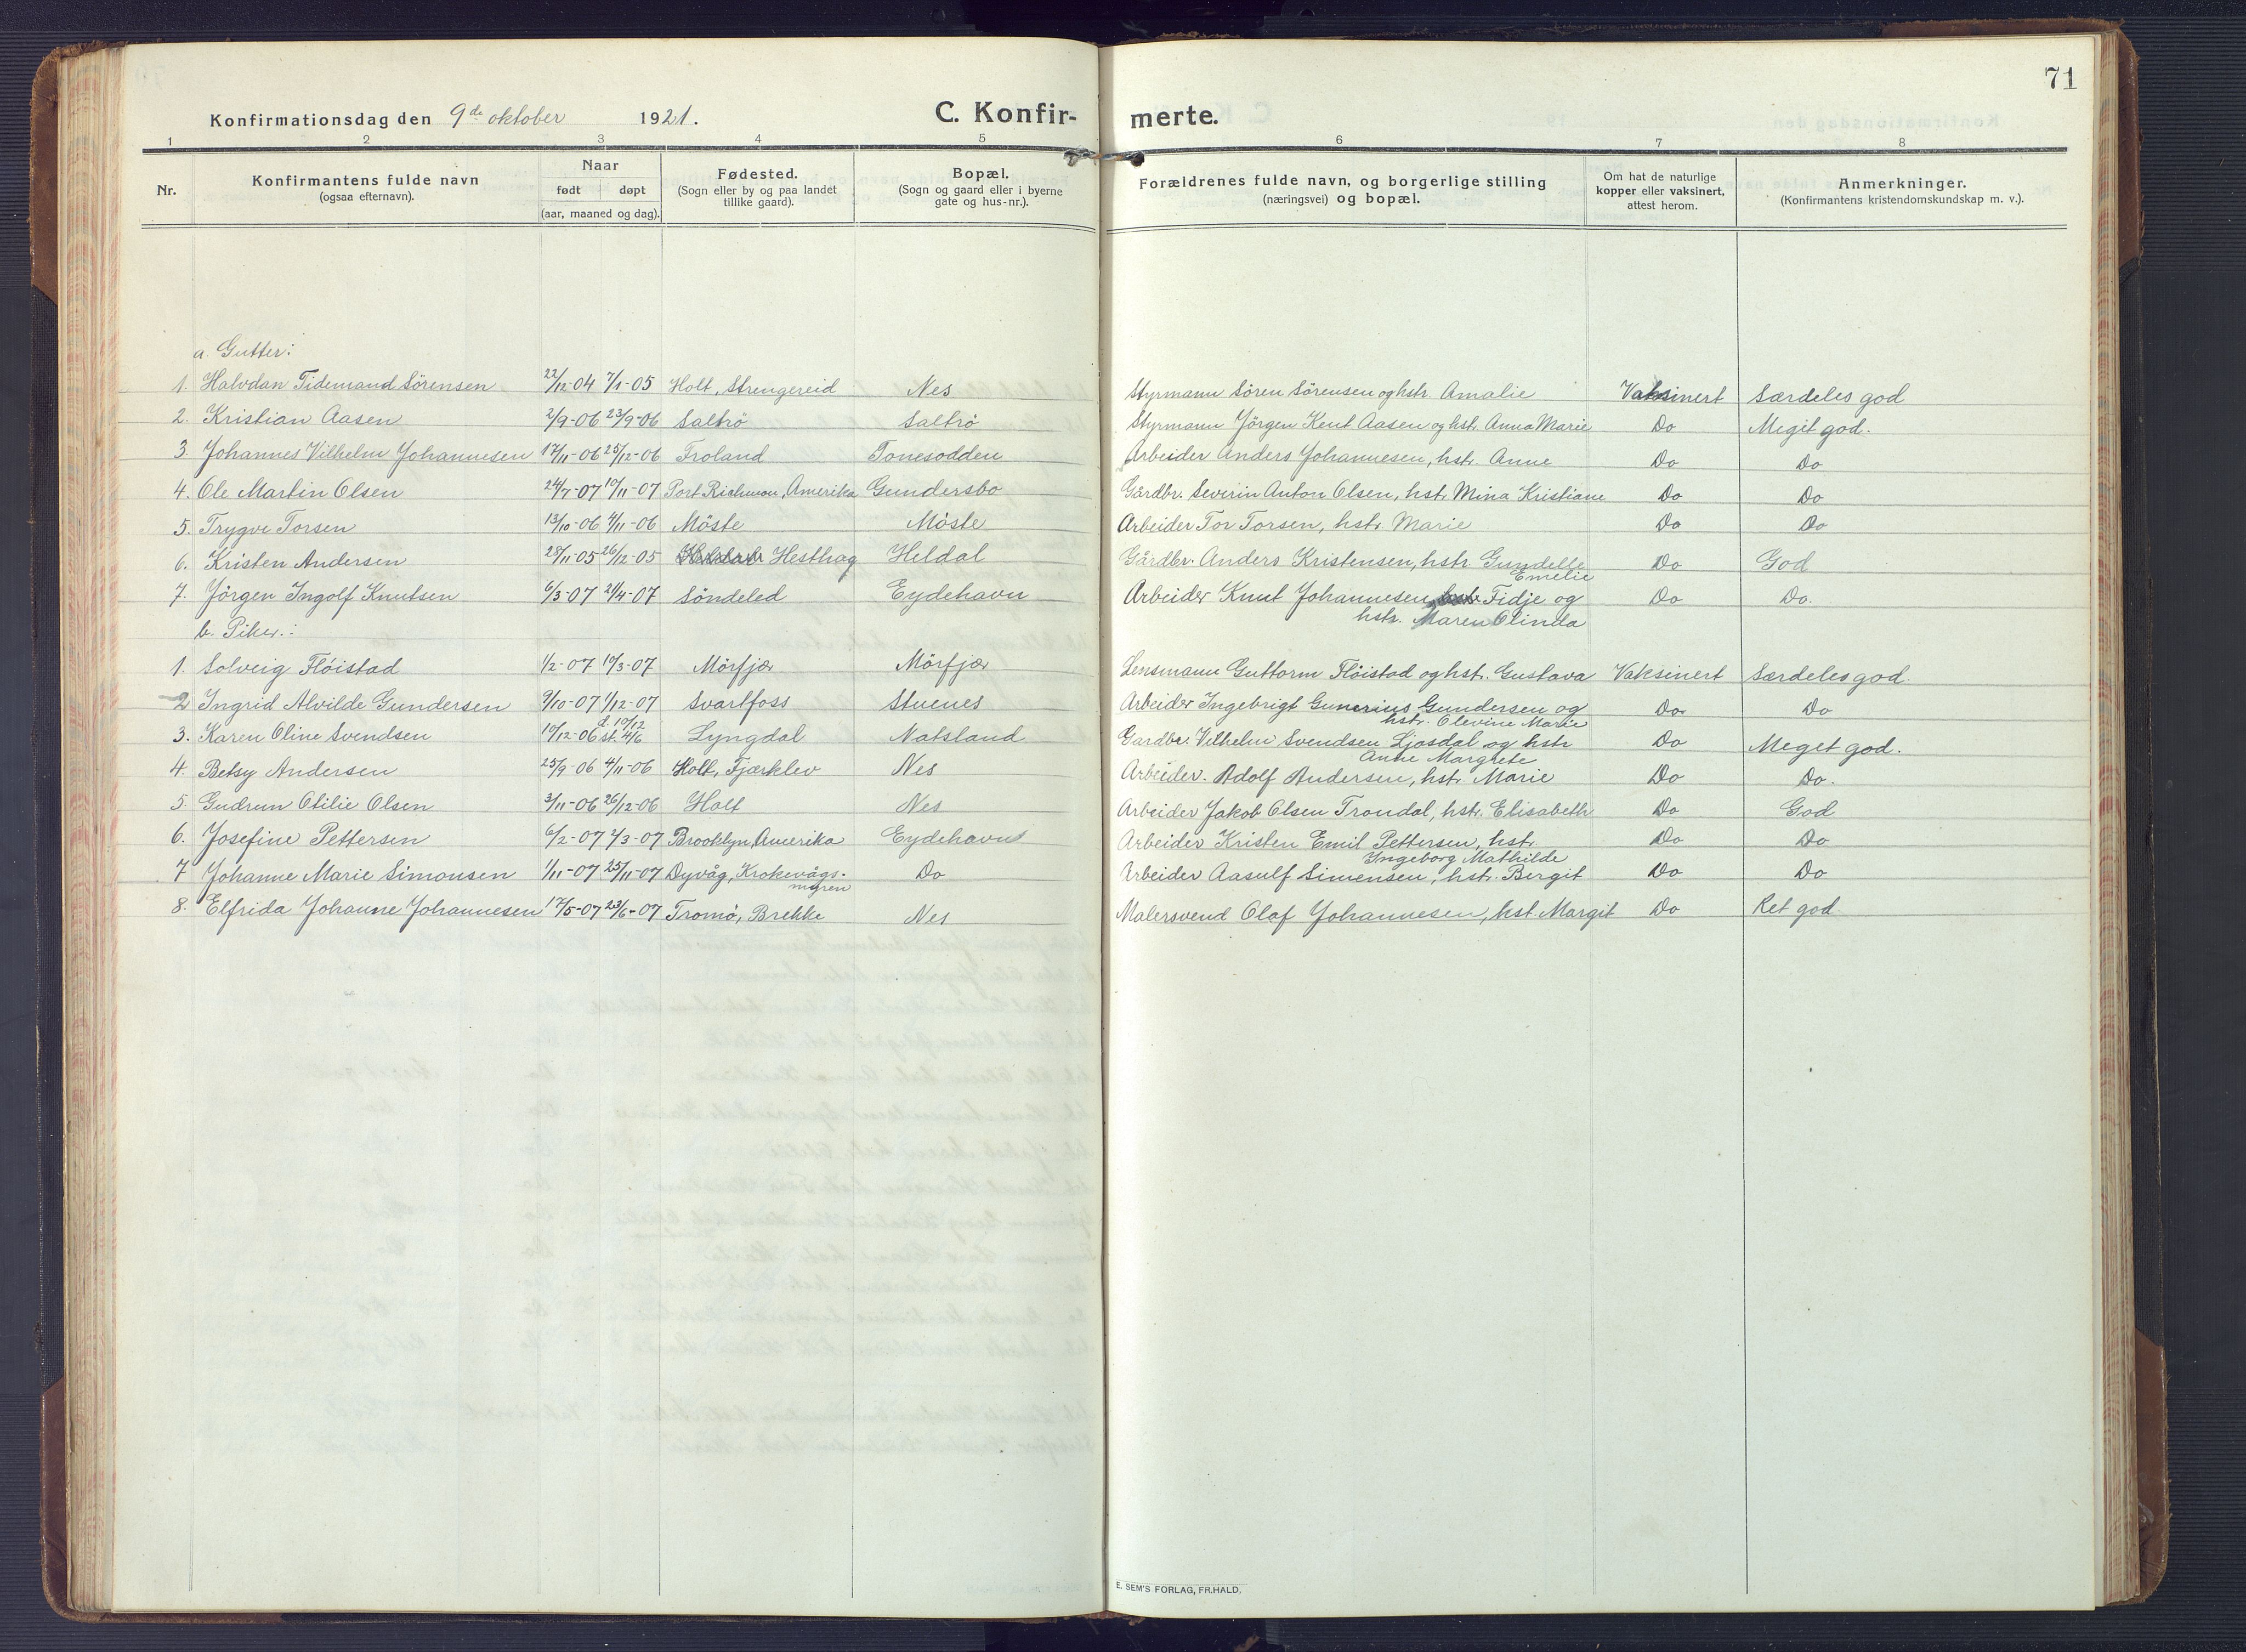 71
Konfirmationsdag den 9de oktober 1921. C. Konfirmerte.
1 2 3 4 5 6 7 8
Nr.
Konfirmantens fulde navn
(ogsaa efternavn).
Naar
født døpt
(aar, maaned og dag).
Fødested.
(Sogn eller by og paa landet
tillike gaard).
Bopæl.
(Sogn og gaard eller i byerne
gate og hus-nr.).
Forældrenes fulde navn, og borgerlige stilling
(næringsvei) og bopæl.
Om hat de naturlige
kopper eller vaksinert,
attest herom.
Anmerkninger.
(Konfirmantens kristendomskundskap m. v.).
a. Gutter:
1. Halvdan Tidemand Sörensen 22/12-04 7/1-05 Holt, Strengereid Nes Styrmann Sören Sörensen og hstr. Amalie Vaksinert Særdeles god
2. Kristian Aasen 2/9-06 23/9-06 Saltrö Saltrö Styrmann Jörgen Kent Aasen og hst. Anna Marie Do Megit god.
3. Johannes Vilhelm Johannesen 17/11-06 25/12-06 Froland Tonesodden Arbeider Anders Johannesen, hstr. Anne Do Do
4. Ole Martin Olsen 24/7-07 10/11-07 Port Richmon, Amerika Gundersbo Gårdbr. Severin Anton Olsen, hstr Mina Kristiane Do Do
5. Trygve Torsen 13/10-06 4/11-06 Möste Möste Arbeider Tor Torsen, hstr. Marie Do Do
6. Kristen Andersen 28/11-05 26/12-05 Hesthag Heldal Gårdbr. Anders Kristensen, hstr. Gundelle Do God
Emelie
7. Jörgen Ingolf Knutsen 6/3-07 21/4-07 Söndeled Eydehavn Arbeider Knut Johannesen Fidje og Do Do.
hstr. Maren Olinda
b. Piker.:
1. Solveig Flöistad 1/2-07 10/3-07 Mörfjær Mörfjær Lensmann Guttorm Flöistad og hst. Gustava Vaksinert Særdeles god.
2 Ingrid Alvilde Gundersen 9/10-07 1/12-07 Svartfoss Stuenes Arbeider Ingebrigt Gunerius Gundersen og Do Do
hstr. Olevine Marie
d. 10/12
3. Karen Oline Svendsen 10/12-06 st. 4/6 Lyngdal Natsland Gardbr. Vilhelm Svendsen Ljosdal og hstr Do Meget god.
Anne Margrete
4. Betsy Andersen 25/9-06 4/11-06 Holt, Fjærklev Nes Arbeider. Adolf Andersen, hstr. Marie Do Do.
5. Gudrun Otilie Olsen 3/11-06 26/12-06 Holt Nes Arbeider Jakob Olsen Trondal, hstr. Elisabeth Do God
6. Josefine Pettersen 6/2-07 2/3-07 Brooklyn, Amerika Eydehavn Arbeider Kristen Emil Pettersen, hstr. Do Do
Ingeborg Mathilde
7 Johanne Marie Simonsen 1/11-07 25/11-07 Dyvåg, Krokevågs- Do Arbeider Aasulf Simensen, hstr. Bergit Do Do
myren
8. Elfrida Johanne Johannesen 17/5-07 23/6-07 Tromö, Brekke Nes Malersvend Olaf Johannesen, hst. Margit Do Ret god.
E. SEM'S FORLAG, FR.HALD.